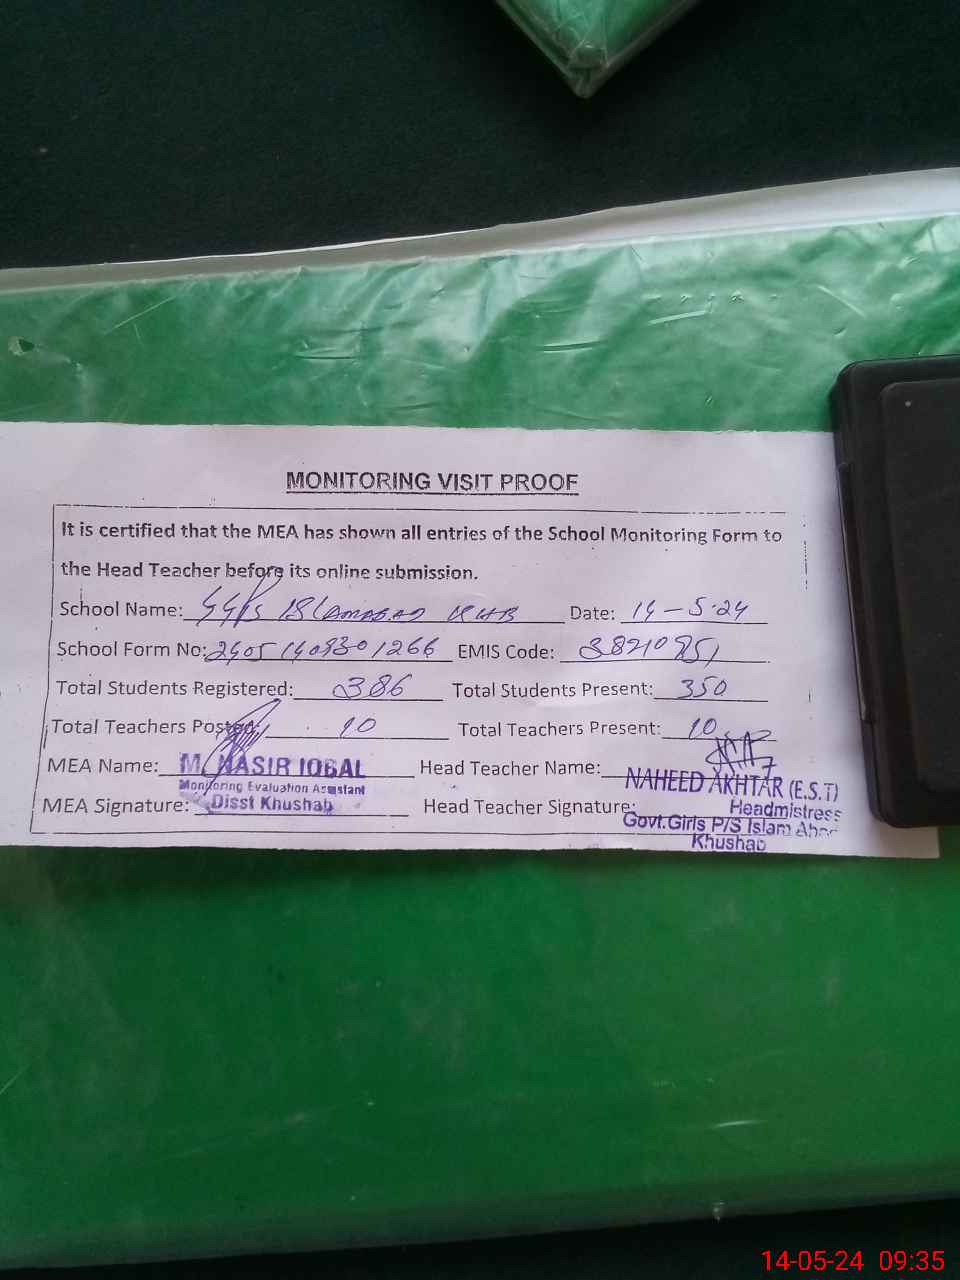 MONITORING VISIT PROOF
It is certified that the MEA has shown all entries of the School Monitoring Form to
the Head Teacher before its online submission.
School Name: GGPS ISLAMABAD KHB Date: 14-5-24
School Form No: EMIS Code:
Total Students Registered: 386 Total Students Present: 350
Total Teachers Posted: 10 Total Teachers Present: 10
MEA Name: M. NASIR IQBAL Head Teacher Name: NAHEED AKHTAR (E.S.T)
Monitoring Evaluation Assistant Headmistress
MEA Signature: Disst Khushab Head Teacher Signature: Govt.Girls P/S Islam Abad
Khushab
14-05-24 09:35